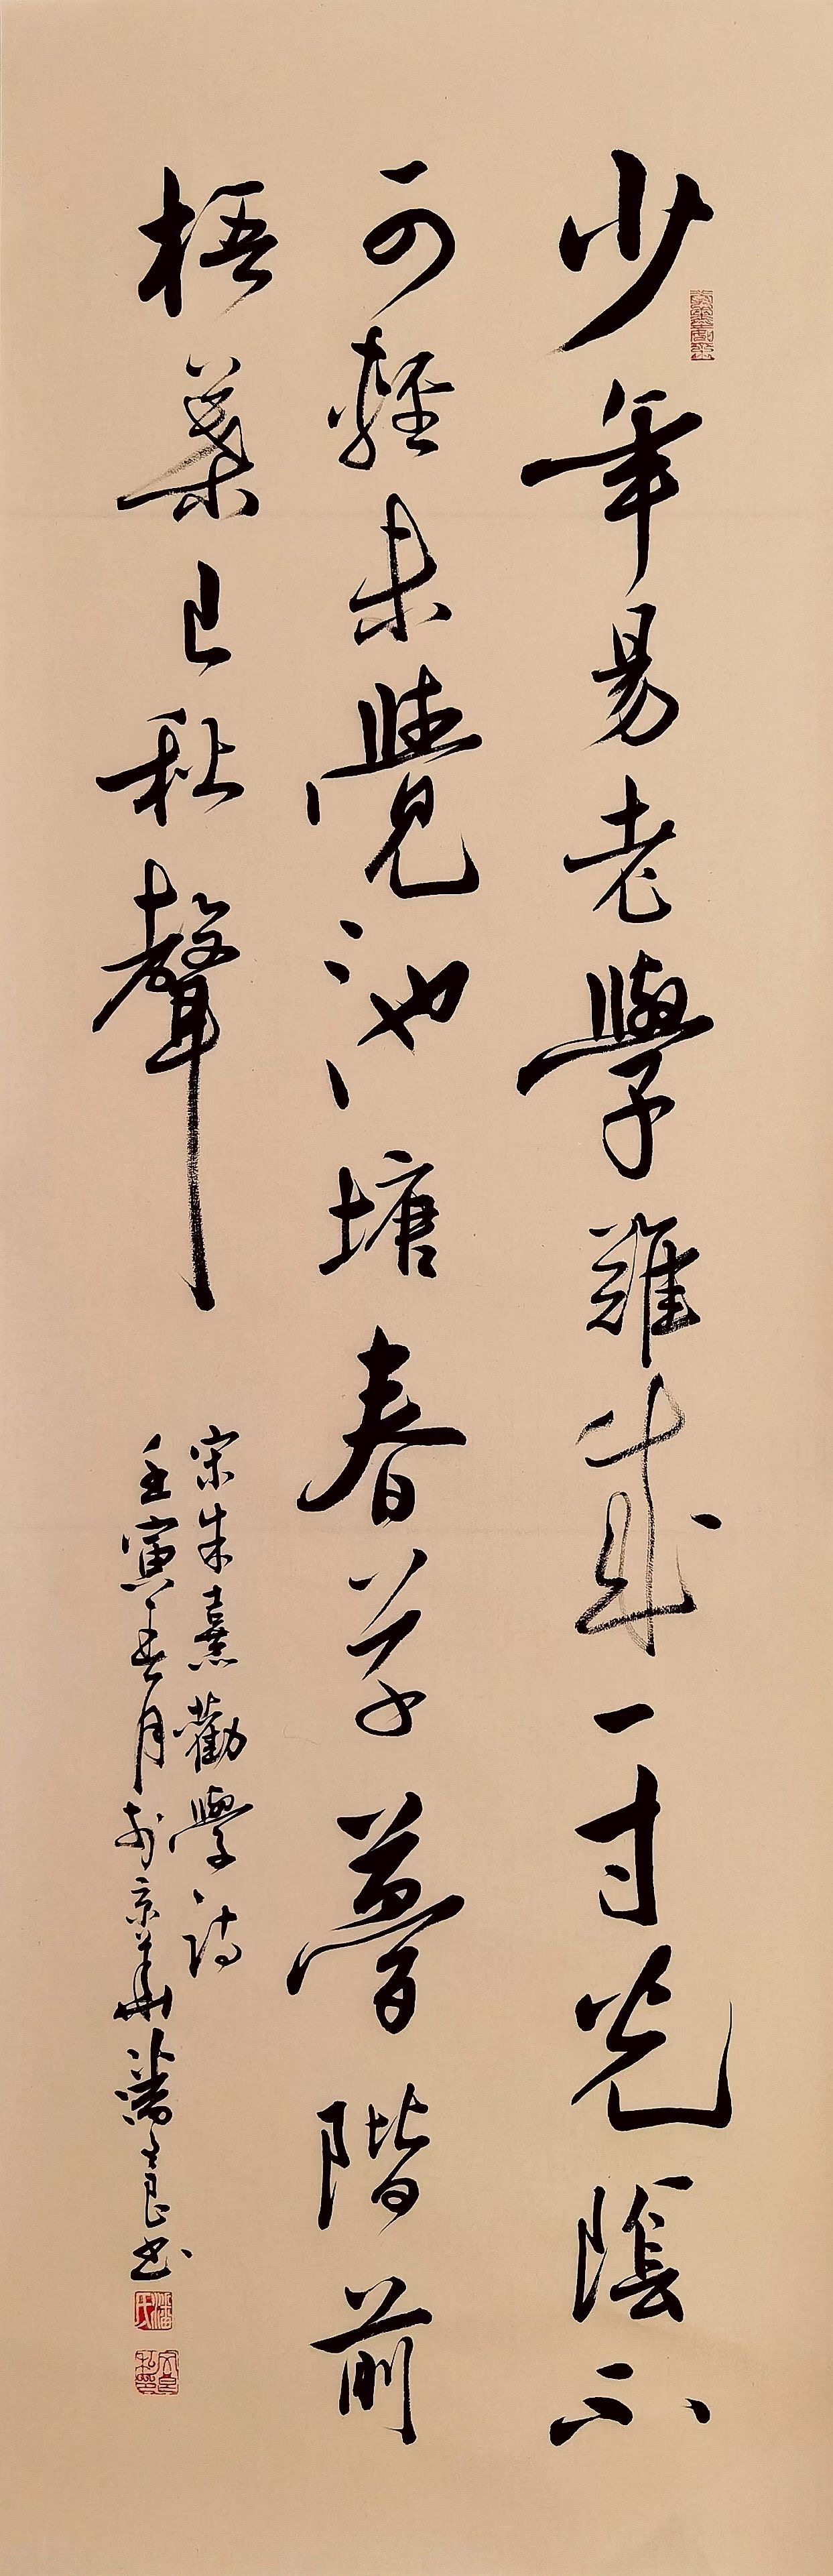 少年易老學難成一寸光陰不
可輕未覺池塘春草夢階前
梧葉已秋聲
宋朱熹勸學詩
壬寅春月於京華潘文良書
潘氏